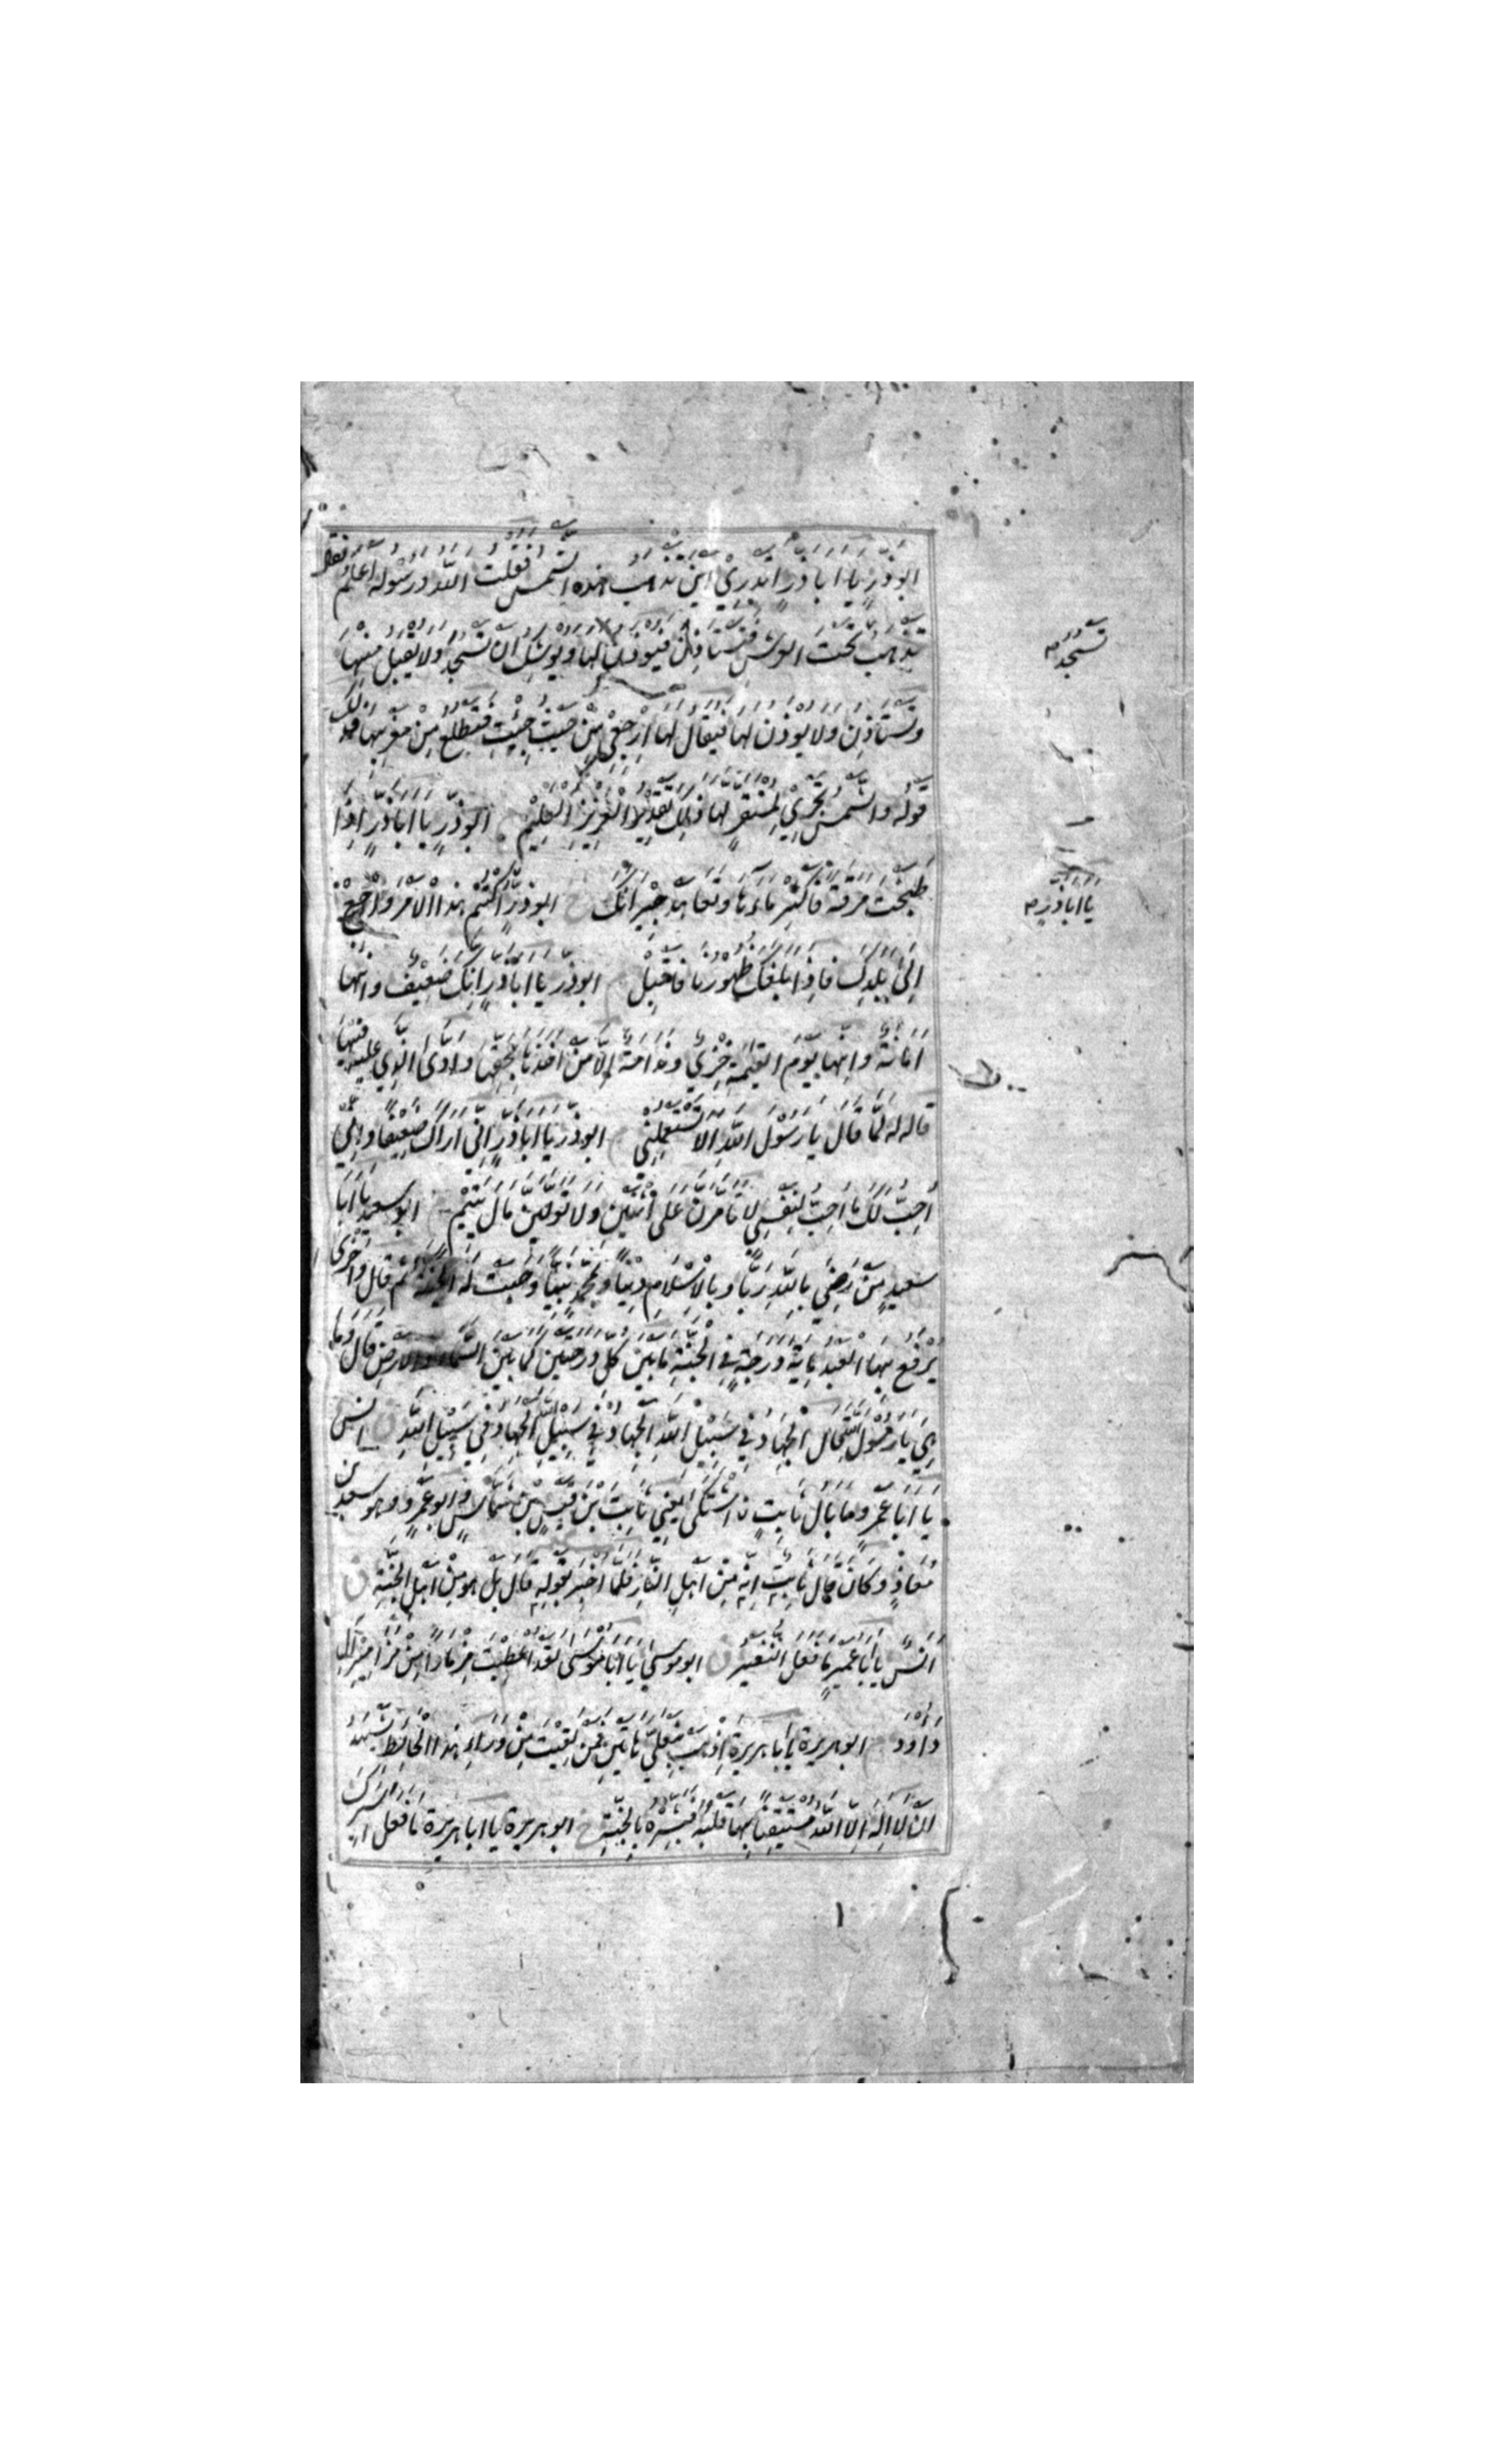 ابُوذَرٍّ يَا اَبَاذَرٍّ اَتَدْرِيْ اَيْنَ تَذْهَبُ هٰذِهِ الشَّمْسُ فَقُلْتُ اللّٰهُ وَرَسُوْلُهُ اَعْلَمُ فقال
تَذْهَبُ تَحْتَ العرش فَتَسْتَاذِنُ فَيُوْذَنُ لَهَا وَيُوْشِكُ اَنْ تَسْجُدَ وَلَا يُقْبَلُ مِنْهَا
تَسْجُدَ
وَتَسْتَاذِنُ وَلَا يُوْذَنُ لَهَا فَيُقَالُ لَهَا اِرْجِعِيْ مِنْ حَيْثُ جِئْتِ فَتَطْلُعُ مِنْ مَغْرِبِهَا فذلك
قَوْلُه وَالشَّمْسُ تَجْرِيْ لِمُسْتَقَرٍّ لَهَا ذٰلِكَ تَقْدِيْرُ الْعَزِيْزِ الْعَلِيْمِ م ابُوذَرٍّ يَا اَبَاذَرٍّ اِذَا
طَبَخْتَ مَرَقَةً فَاَكْثِرْ مَاءَهَا وَتَعَاهَدْ جِيْرَانَكَ خ ابوذَرٍّ اُكْتُمْ هٰذَا الْاَمْرَ وَارْجِعْ
يَا اَبَاذَرٍّ
اِلىٰ بَلَدِكَ فَاِذَا بَلَغَكَ ظُهُوْرُنَا فَاَقْبِلْ م ابوذرّ يا اَبَاذَرٍّ اِنَّكَ ضَعِيْفٌ وَاِنَّهَا
اَمَانَةٌ وَاِنَّهَا يَوْمَ الْقِيٰمَةِ خِزْيٌ وَنَدَامَةٌ اِلَّا مَنْ اَخَذَهَا بِحَقِّهَا وَاَدّٰى الَّذِيْ عَلَيْهِ فِيْهَا
قَالَه لَهُ لَمَّا قَالَ يَا رَسُوْلَ اللّٰهِ اَلَا تَسْتَعْمِلُنِيْ م ابوذر يا اباذَرٍّ اِنّى اَرَاكَ ضَعِيْفًا وَاِنِّيْ
اُحِبُّ لَكَ مَا اُحِبُّ لِنَفْسِيْ لَا تَاَمَّرَنَّ عَلَى اثْنَيْنِ وَلَا تَوَلَّيَنَّ مَالَ يَتِيْمٍ م ابو سعيد يَا اَبَا
سعيدٍ مَنْ رَضِيَ بِاللّٰهِ رَبًّا وَبِالْاِسْلَامِ دِيْنًا وَبِمُحَمَّدٍ نَبِيًّا وَجَبَتْ لَهُ الْجَنَّةُ ثُمَّ قَالَ وَاُخْرٰى
يُرْفَعُ بِهَا الْعَبْدُ مِائَةَ دَرَجَةٍ فِي الْجَنَّةِ مَا بَيْنَ كُلِّ دَرَجَتَيْنِ كَمَا بَيْنَ السَّمَاءِ وَالْاَرْضِ قَالَ وَمَا
هِيَ يَا رَسُوْلَ اللّٰهِ قَالَ الْجِهَادُ فِيْ سَبِيْلِ اللّٰهِ الْجِهَادُ فِيْ سَبِيْلِ اللّٰهِ الْجِهَادُ فِيْ سَبِيْلِ اللّٰهِ ق انس
يَا اَبَا عَمْرٍو مَا بَالُ ثَابِتٍ اشْتَكٰى يَعْنِيْ ثَابِتَ ابْنَ قَيْسٍ بْنِ شَمَّاسٍ وابو عَمْرٍو هو سعد بن
مُعَاذٍ وَكَانَ قَالَ ثَابِتٌ اِنَّهُ مِنْ اَهْلِ النَّارِ فَلَمَّا اُخْبِرَ بِقَوْلِهِ قَالَ بَلْ هُوَ مِنْ اَهْلِ الْجَنَّةِ ق
اَنَسٌ يَا اَبَا عُمَيْرٍ مَا فَعَلَ النُّغَيْرُ ق ابوموسى يَا اَبَا مُوْسٰى لَقَدْ اُعْطِيْتَ مِزْمَارًا مِنْ مَزَامِيْرِ اٰلِ
دَاوُدَ م ابوهريرة يَا اَبَا هُرَيْرَةَ اِذْهَبْ بِنَعْلَيَّ هَاتَيْنِ فَمَنْ لَقِيْتَ مِنْ وَرَاءِ هٰذَا الْحَائِطِ يَشْهَدُ
اَنْ لَا اِلٰهَ اِلَّا اللّٰهُ مُسْتَيْقِنًا بِهَا قَلْبُهُ فَبَشِّرْهُ بِالْجَنَّةِ خ ابوهريرة يا اباهريرة مَا فَعَلَ اَسِيْرُكَ